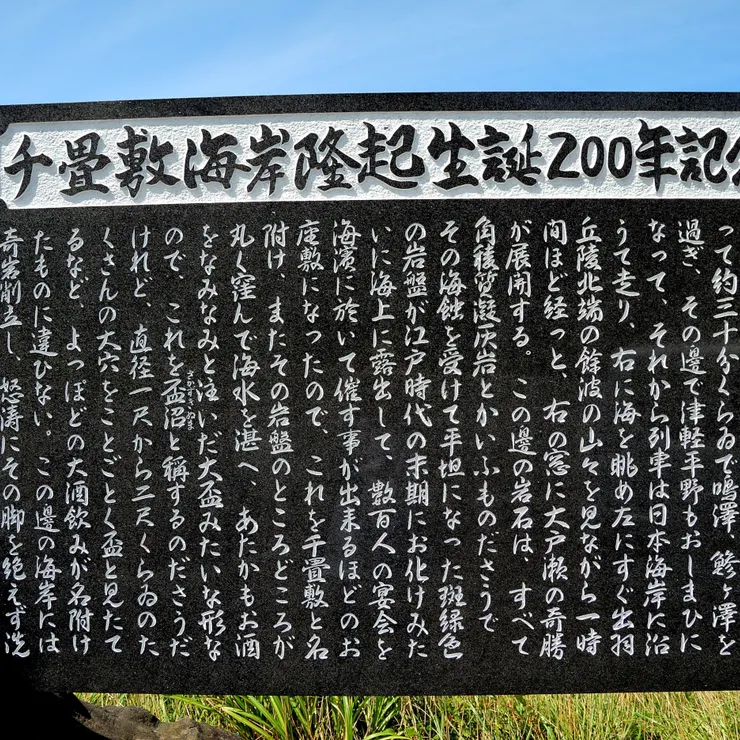 千畳敷海岸隆起生誕200年記
って約三十分くらゐで鳴澤、鰺ヶ澤を
過ぎ、その邊で津軽平野もおしまひに
なって、それから列車は日本海岸に沿
うて走り、右に海を眺め左にすぐ出羽
丘陵北端の餘波の山々を見ながら一時
間ほど経つと、右の窓に大戸瀬の奇勝
が展開する。この邊の岩石は、すべて
角稜質凝灰岩とかいふものださうで
その海蝕を受けて平坦になった斑緑色
の岩盤が江戸時代の末期にお化けみた
いに海上に露出して、数百人の宴会を
海濱に於いて催す事が出来るほどのお
座敷になったので、これを千畳敷と名
附け、またその岩盤のところどころが
丸く窪んで海水を湛へ あたかもお酒
をなみなみと注いだ大盃みたいな形な
ので、これを盃沼と稱するのださうだ
さかずきぬま
けれど、直径一尺から二尺くらゐのた
くさんの大穴をことごとく盃と見たて
るなど、よっぽどの大酒飲みが名附け
たものに違ひない。この邊の海岸には
奇岩削立し、怒濤にその脚を絶えず洗